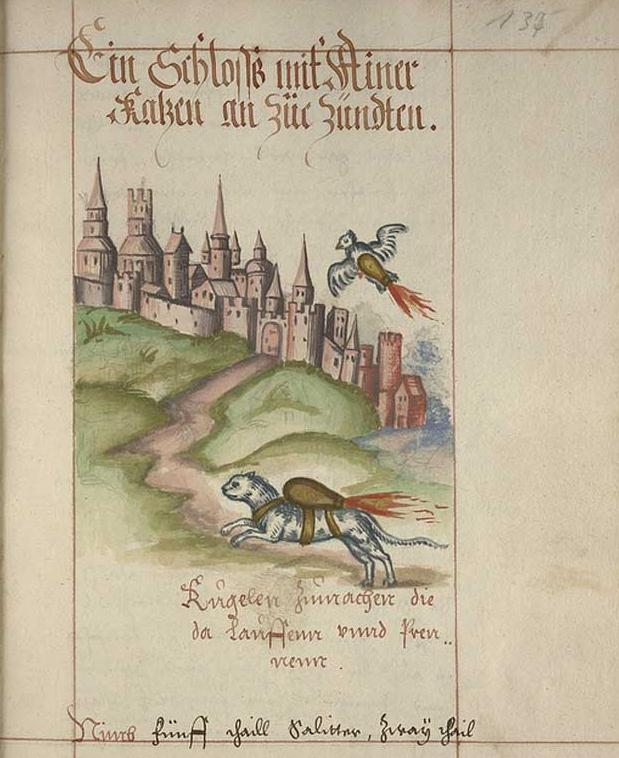 135
Ein Schloss mit Ainer
Katzen an züe zündten.
Kugelen Zumachen die
da Lauffenn vnnd Pren„
nenn.
Nimb fünff thaill Salitter, Zway thail